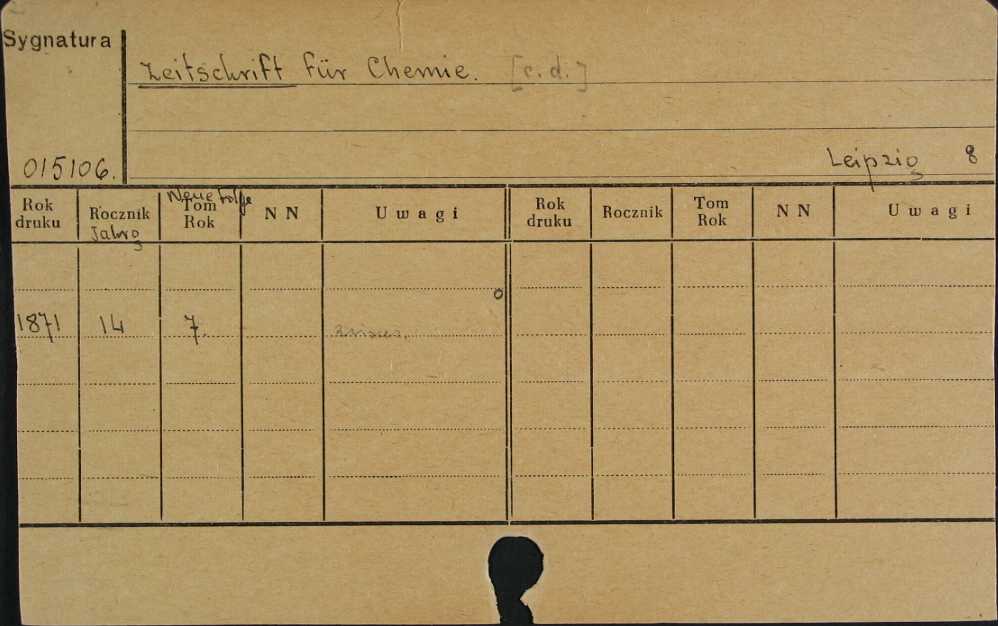 Sygnatura
Zeitschrift für Chemie. [c.d.]
015106.
Leipzig 8
Rok druku Rocznik Jahrg Neue Folge Tom Rok NN Uwagi Rok druku Rocznik Tom Rok NN Uwagi
1871 14 7.